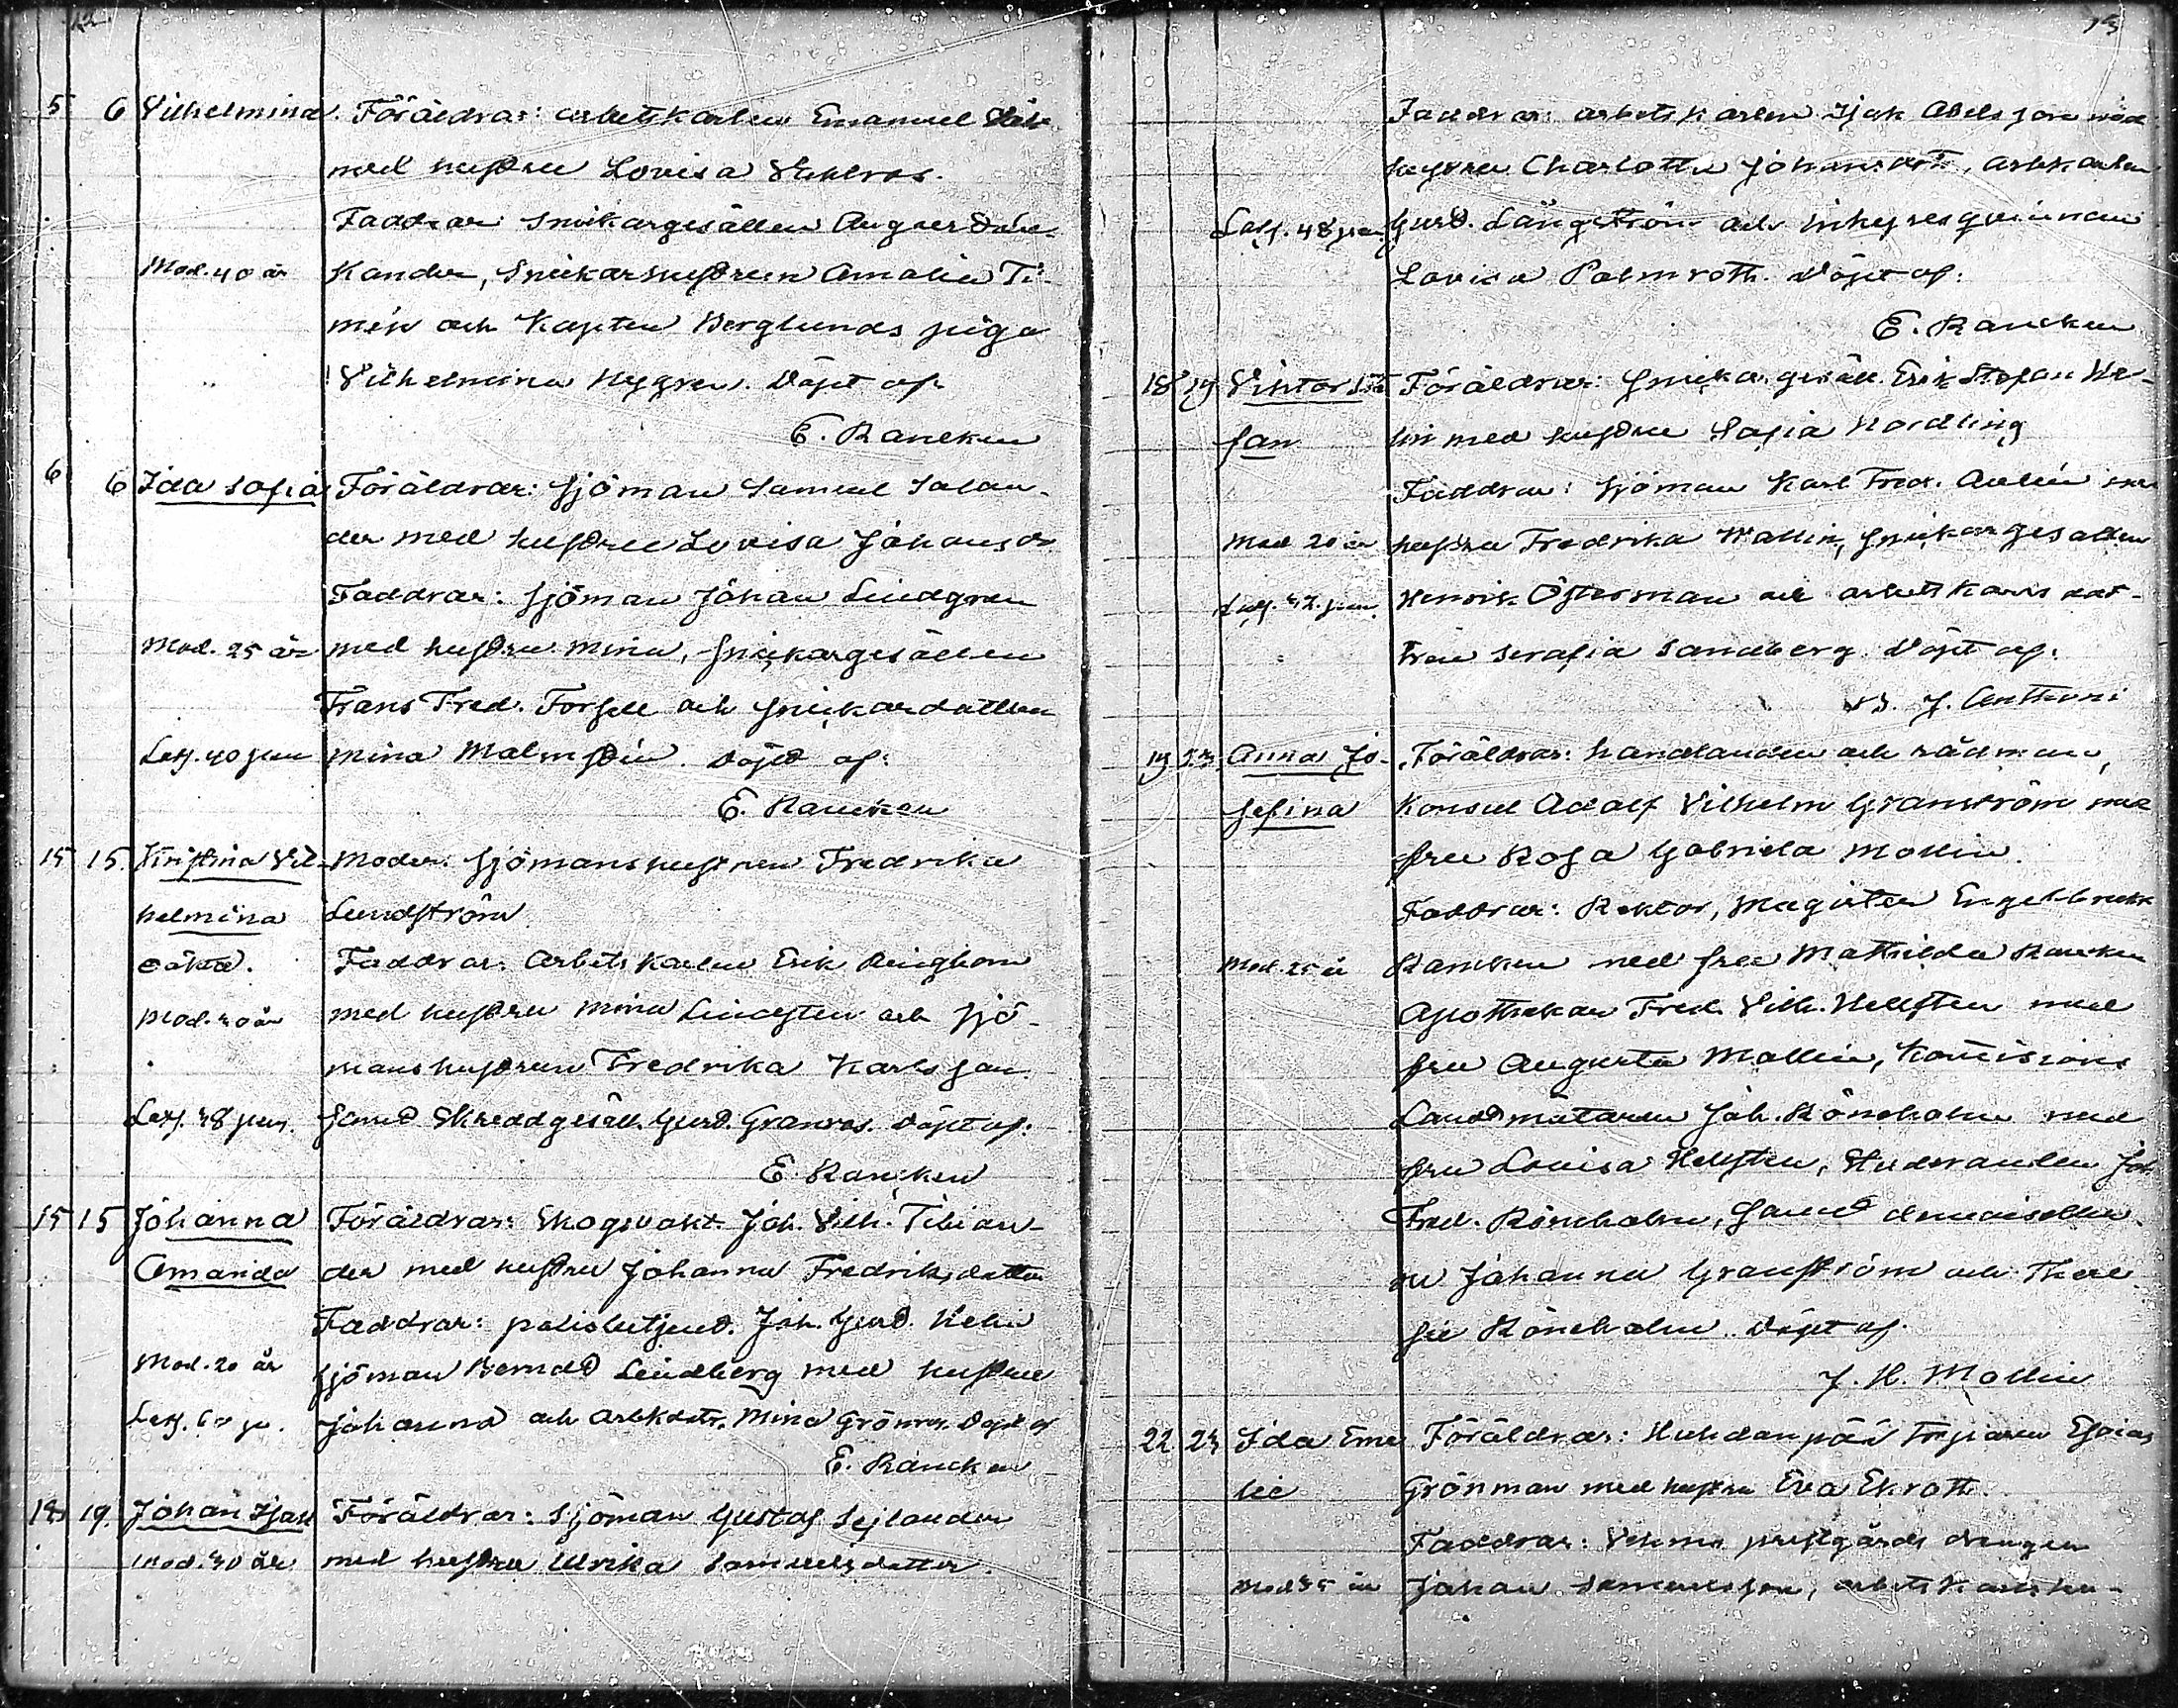 5 6 Vilhelmina. Föräldrar: arbetskarlen Emanuel
med hustru Lovisa Stahlros.
Faddrar: Snickargesällen August
Mod. 40 år kander, Snickarhustrun Amalia Ti-
mén och Kapten Berglunds piga
Vilhelmina Nygren. Döpt af
E. Rancken
6 6 Ida Sofia Föräldrar: Sjöman Samuel Salan-
der med hustru Lovisa Johansdr
Faddrar: Sjöman Johan Lindgren
Mod. 25 år med hustru Mina, Snickargesällen
Frans Fred. Forsell och Snickardottren
Lasf. 40 Mina Malmstén. Döpt af:
E. Rancken
15 15. Kristina Vil- Moder: Sjömanshustrun Fredrika
helmina Lundström
oäkta. Faddrar: Arbetskarlen Erik
Mod. 40 år med hustru Mina och Sjö-
manshustrun Fredrika Karlsson
samt Skreddgesäll. Gust. Granros. Döpt af:
E. Rancken
15 15 Johanna Föräldrar: Skogsvakt. Joh. Vilh. Tibian-
Amanda der med hustru Johanna Fredriksdotter
Faddrar: polisbetjent. Joh. Gust. Helin
Mod. 20 år Sjöman Berndt Lindberg med hustru
Johanna och Mina Grönros. Döpt af
E. Rancken
18 19. Johan Isak Föräldrar: Sjöman Gustaf Sejlander
Mod. 40 år med hustru Ulrika Samuelsdotter.
13
Faddrar: arbetskarlen Isak Abelsson med
hustru Charlotta Johansdotr, arbtkarlen
Gust. Långström och inhyresqvinnan
Lovisa Palmroth. Döpt af:
E. Rancken
18 19 Viktor Ste- Föräldrar: Snickargesäll. Erik Stefan He-
fan lin med hustru Sofia Nordling
Faddrar: Sjöman Karl Fred. Aulin med
Mod 20 år hustru Fredrika Wallin, Snickargesällen
Henrik Österman och arbetskarls dot-
tren Serafia Sandberg. Döpt af:
J. Anthoni
19 23 Anna Jo- Föräldrar: handlanden och rådman,
sefina Konsul Adolf Vilhelm Granström med
fru Rosa Gabriela Mollin.
Faddrar: Rektor, Magister Engelbrekt
Mod. 25 år Rancken med fru Mathilda Rancken
Apothekar Fred. Vilh. Hellsten med
fru Augusta Mollin, Komissions
Landtmätaren Joh. Rönnholm med
fru Lovisa Hellsten, Studeranden Joh
Fred. Rönnholm, samt demoiseller-
na Johanna Granström och There-
sie Rönnholm. Döpt af
J. H. Mollin
22 23 Ida Eme- Föräldrar: Huhdanpää Torparen Esaias
lie Grönman med hustru Eva Ekroth.
Faddrar: Vehmo prestgårds drengen
Mod 35 år Johan Samuelsson, arbetskarlshu-